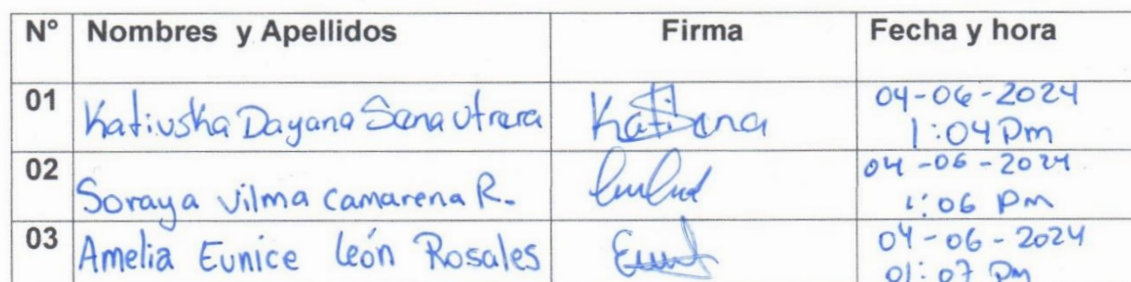 N° Nombres y Apellidos Firma Fecha y hora
01 Katiuska Dayana Sana Utrera Katisana 04-06-2024
1:04 Pm
02 Soraya vilma camarena R. 04-06-2024
1:06 Pm
03 Amelia Eunice león Rosales 04-06-2024
01:07 Pm